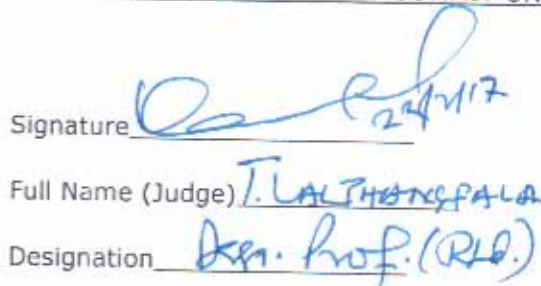 Signature 22/2/17
Full Name (Judge) T. LALTHANGPALA
Designation Prof. (Rtd.)